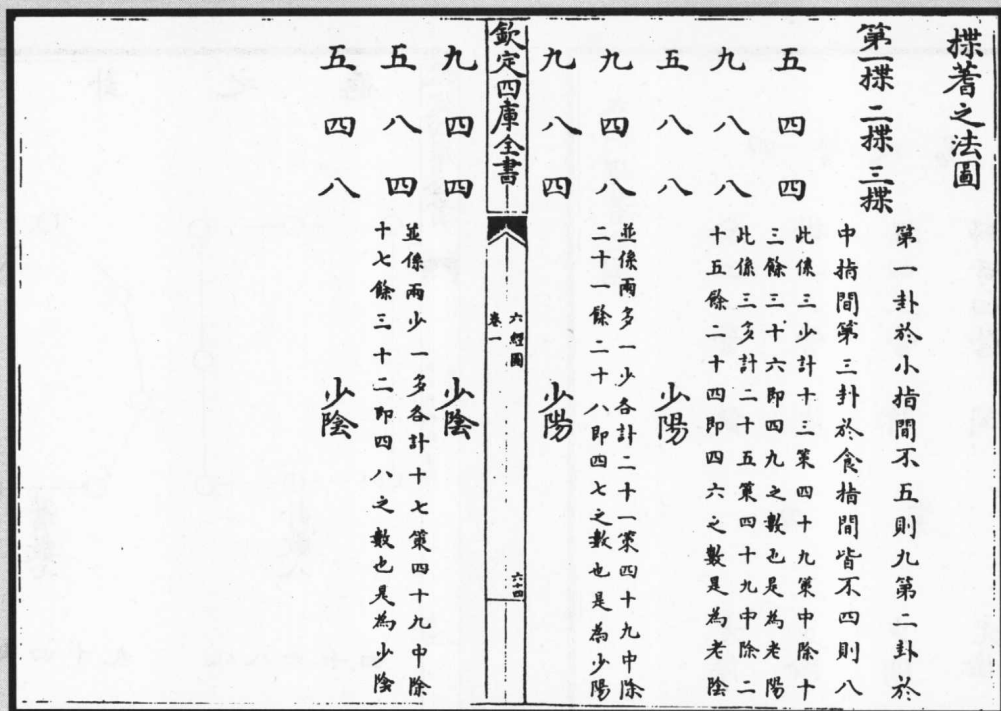 揲蓍之法圖
第一揲二揲三揲
第一卦於小指間不五則九第二卦於
中指間第三卦於食指間皆不四則八
五四四
此係三少計十三策四十九策中除十
三餘三十六即四九之數也是為老陽
九八八
此係三多計二十五策四十九中除二
十五餘二十四即四六之數是為老陰
五八八 少陽
九四八
並係兩多一少各計二十一策四十九中除
二十一餘二十八即四七之數也是為少陽
九八四 少陽
欽定四庫全書
六經圖
卷一
六十四
九四四 少陰
五八四
並係兩少一多各計十七策四十九中除
十七餘三十二即四八之數也是為少陰
五四八 少陰